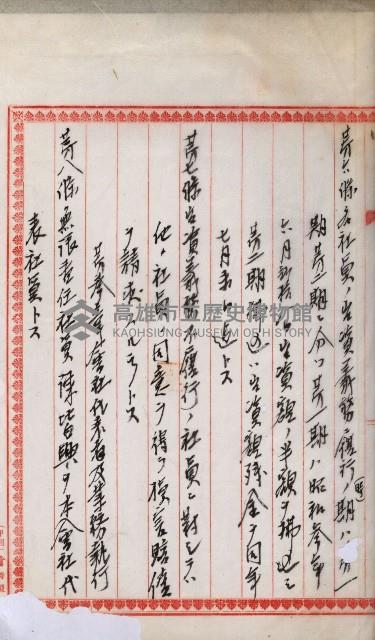 第六條 各社員ノ出資義務ノ履行ノ期ハ第一
期第二期ニ分ツ第一期ハ昭和参年
六月 出資額ノ半額ヲ拂込ミ
第二期拂込ハ出資額残金ヲ同年
七月末日迄トス
第七條 出資義務不履行ノ社員ニ對シテハ
他ノ社員ノ同意ヲ得テ損害賠償
ヲ請求スルモノトス
第参章 會社代表者及業務執行
第八條 無限責任社員陳皆興ヲ本會社代
表社員トス
高雄市立歷史博物館
KAOHSIUNG MUSEUM OF HISTORY